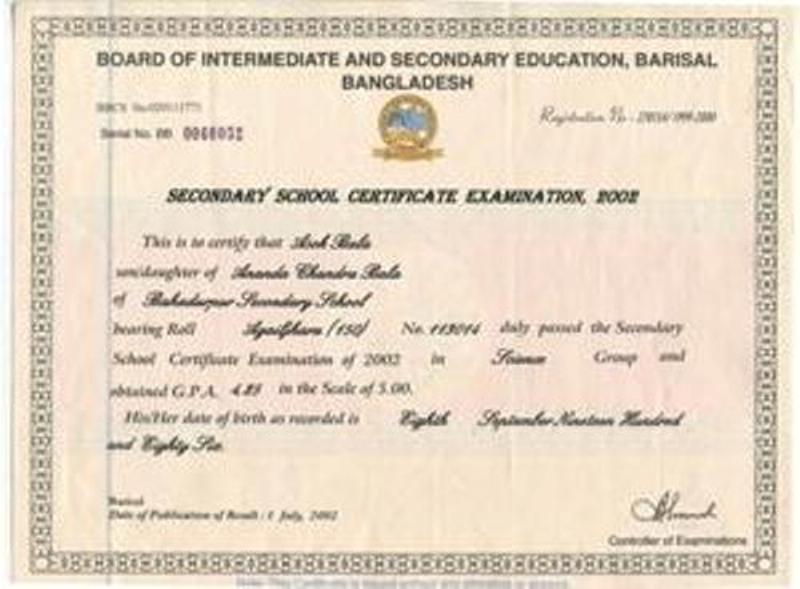 BOARD OF INTERMEDIATE AND SECONDARY EDUCATION, BARISAL
BANGLADESH
Registration No -
Serial No. BB 0068052
SECONDARY SCHOOL CERTIFICATE EXAMINATION, 2002
This is to certify that Bala
son/daughter of Ananda Chandra Bala
of Bahadurpur Secondary School
bearing Roll No. 113014 duly passed the Secondary
School Certificate Examination of 2002 in Science Group and
obtained G.P.A. in the Scale of 5.00.
His/Her date of birth as recorded is Eighth September Nineteen Hundred
and Eighty Six.
Barisal
Date of Publication of Result : 1 July, 2002
Controller of Examinations